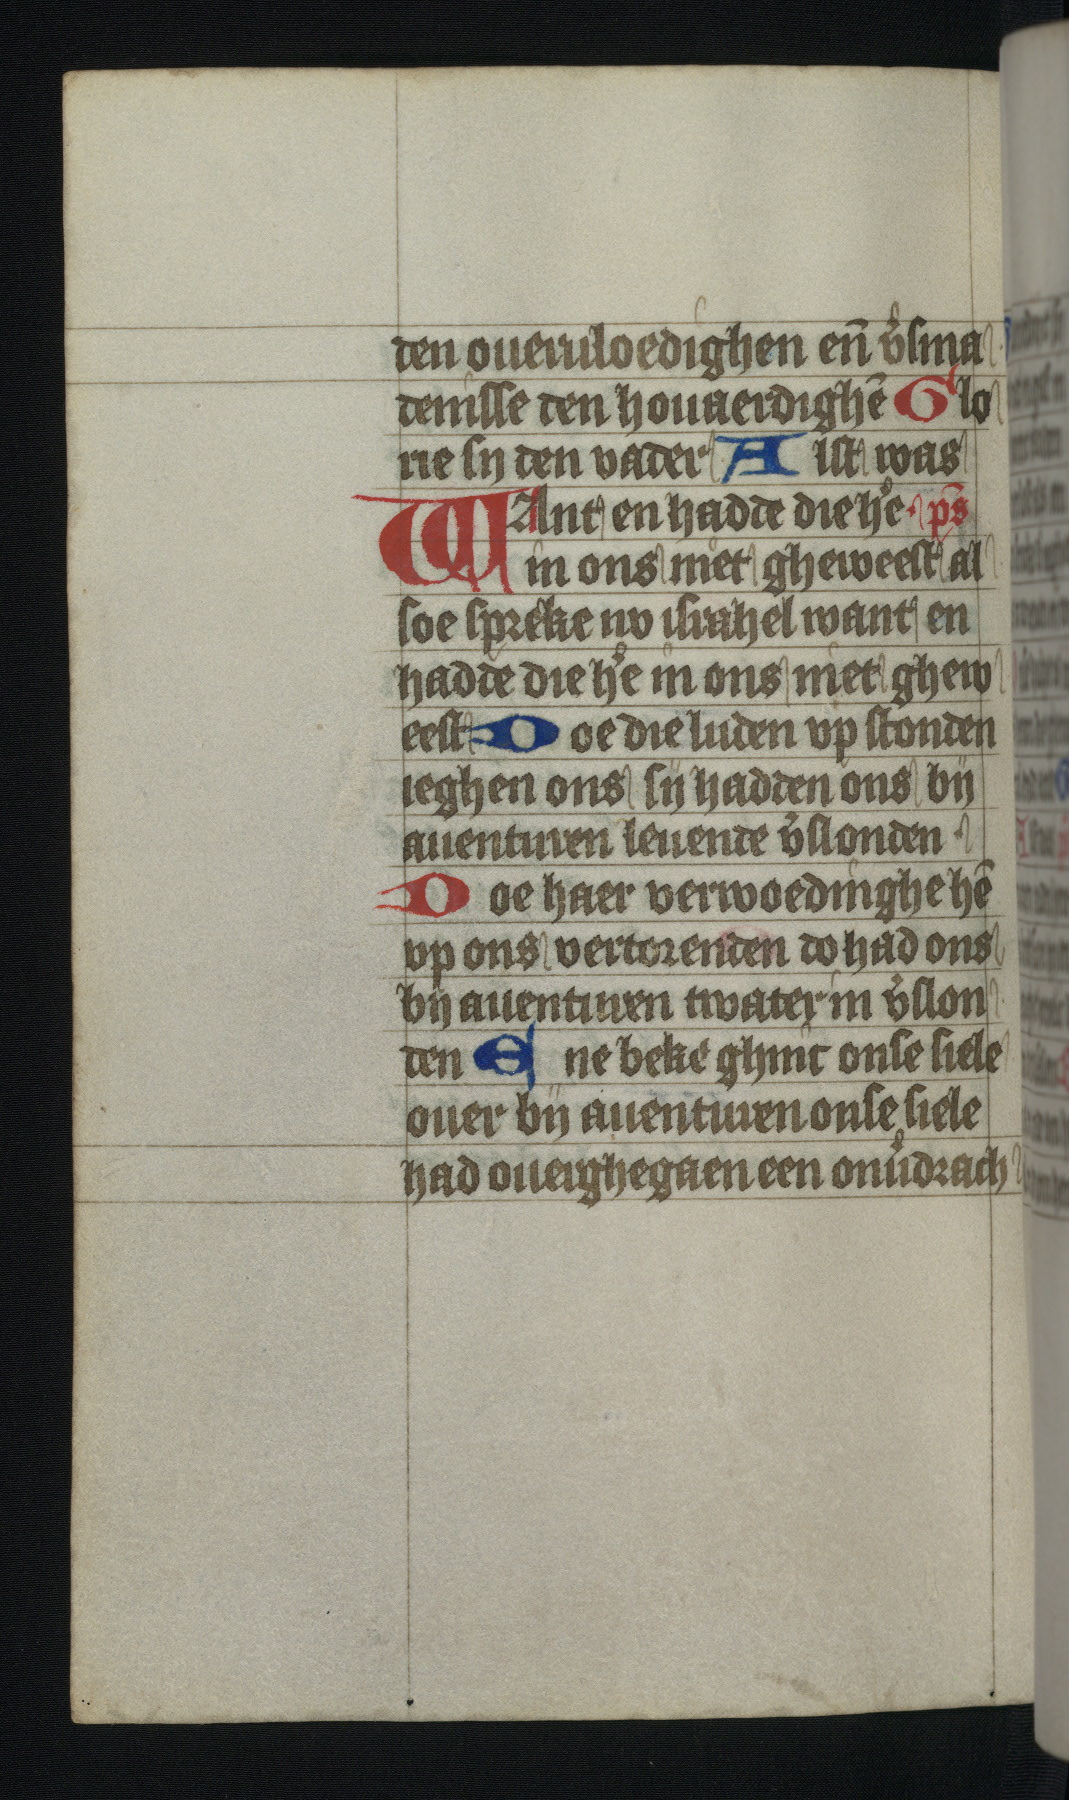 den oueruloedighen en̄ v̉sma
denisse den houaerdighē Glo
rie sij den vader Alst was
WAnt en hadde die hẻ · ps̄
in ons niet gheweest al
soe spreke nv israhel want en
hadde die hẻ in ons niet ghew
eest Doe die luden vp stonden
ieghen ons sij hadden ons bij
auenturen leuende v̉slonden
Doe haer verwoedinghe hē
vp ons vertorenden do had ons
bij auenturen twater in v̉slon
den Ene beke ghinc onse siele
ouer bij auenturen onse siele
had ouerghegaen een onủdrach